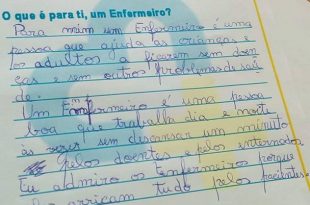 O que é para ti, um Enfermeiro?
Para mim um Enfermeiro é uma
pessoa que ajuda as crianças e
os adultos a ficarem sem doen
ças e sem outros problemas de saú
de.
Um Enfermeiro é uma pessoa
boa que trabalha dia e noite
às vezes sem discansar um minuto
pelos doentes e pelos internados
Eu admiro os Enfermeiros porque
arriscam tudo pelos pacientes